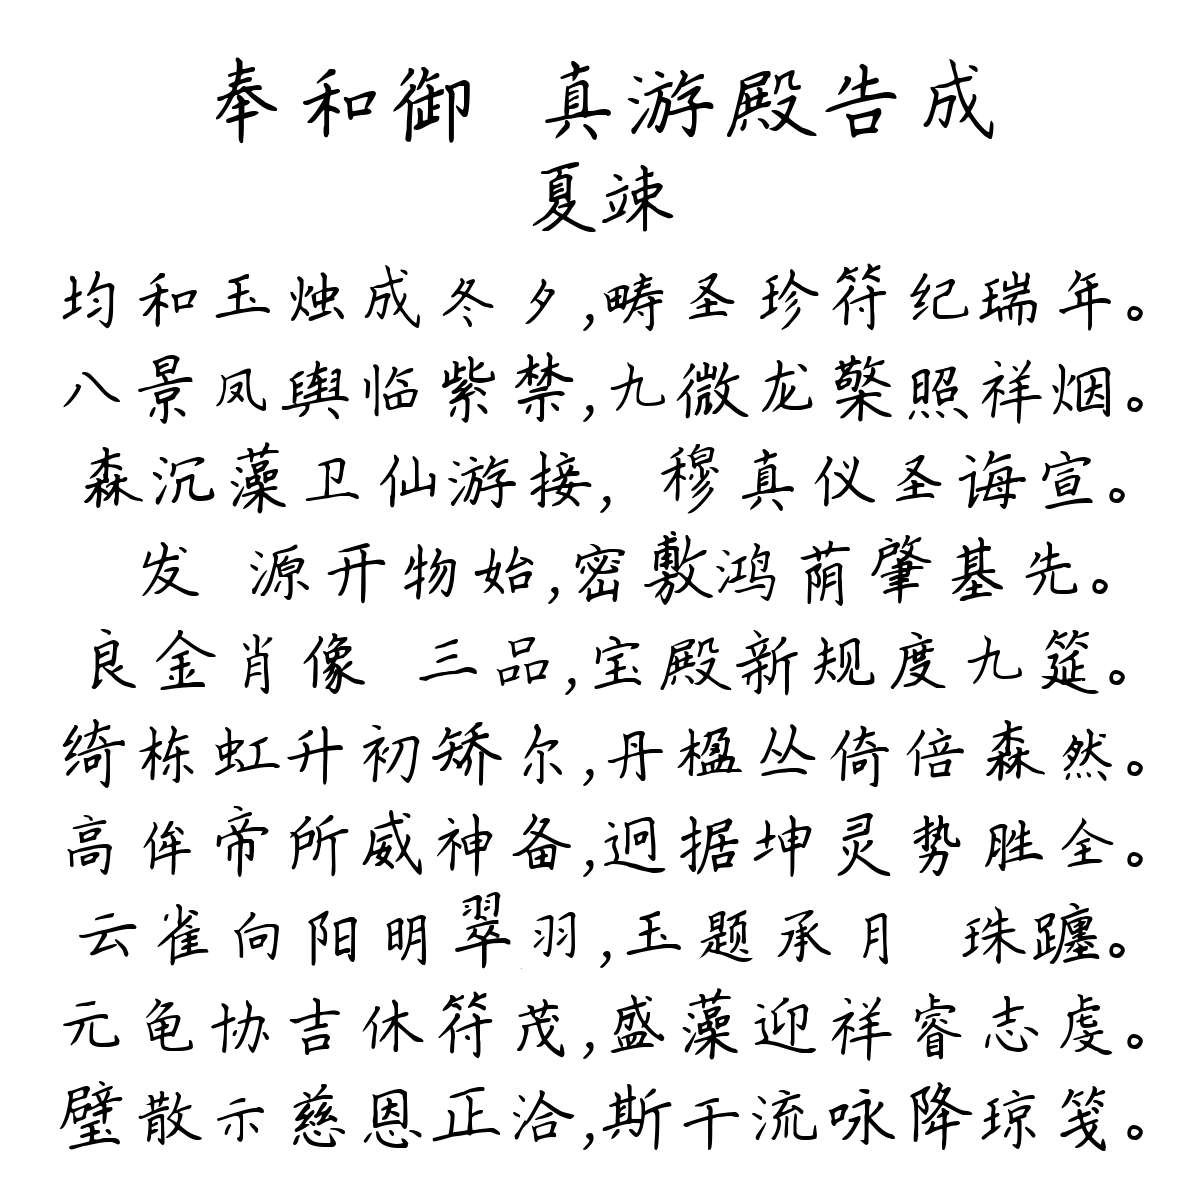 奉和御 真游殿告成
夏竦
均和玉烛成冬夕,畴圣珍符纪瑞年。
八景凤舆临紫禁,九微龙檠照祥烟。
森沉藻卫仙游接, 穆真仪圣诲宣。
发 源开物始,密敷鸿荫肇基先。
良金肖像 三品,宝殿新规度九筵。
绮栋虹升初矫尔,丹楹丛倚倍森然。
高侔帝所威神备,迥据坤灵势胜全。
云雀向阳明翠羽,玉题承月 珠躔。
元龟协吉休符茂,盛藻迎祥睿志虔。
璧散示慈恩正洽,斯干流咏降琼笺。